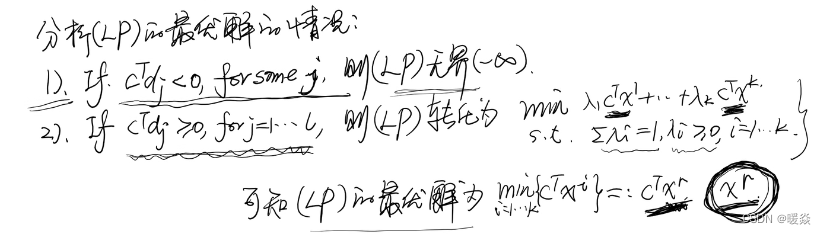 分析(LP)的最优解的情况:
1). If cᵀdj<0, for some j, 则(LP)无界(-∞).
2). If cᵀdj≥0, for j=1...l, 则(LP)转化为 min λ₁cᵀx¹+...+λₖcᵀxᵏ.
s.t. Σλi=1, λi≥0, i=1...k.
可知(LP)的最优解为 min{cᵀxⁱ}=: cᵀxʳ xʳ
i=1...k
CSDN @暖焱